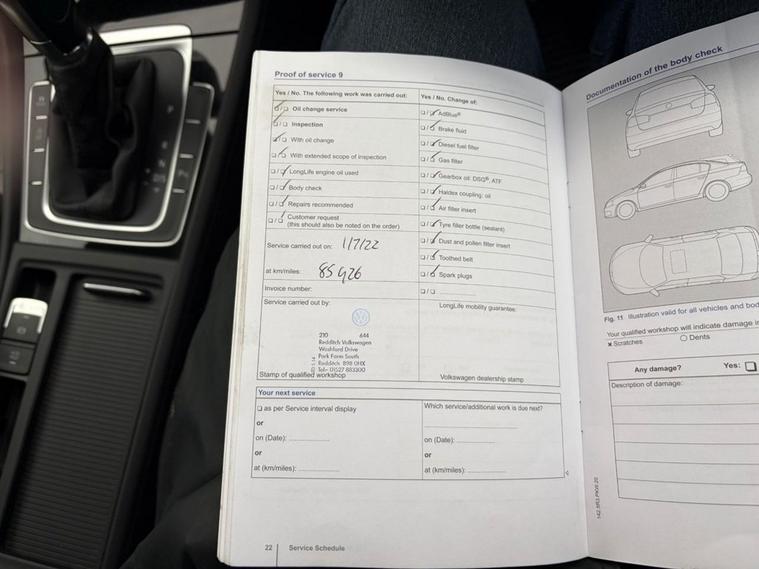 Proof of service 9
Yes / No. The following work was carried out:
☐ / ☐ Oil change service
☐ / ☐ Inspection
☐ / ☐ With oil change
☐ / ☐ With extended scope of inspection
☐ / ☐ LongLife engine oil used
☐ / ☐ Body check
☐ / ☐ Repairs recommended
☐ / ☐ Customer request
(this should also be noted on the order)
Service carried out on: 1/7/22
at km/miles: 85426
Invoice number:
Service carried out by:
210 644
Redditch Volkswagen
Washford Drive
Park Farm South
Redditch B98 0HX
Tel: 01527 883300
Stamp of qualified workshop
Yes / No. Change of:
☐ / ☐ AdBlue®
☐ / ☐ Brake fluid
☐ / ☐ Diesel fuel filter
☐ / ☐ Gas filter
☐ / ☐ Gearbox oil: DSG®, ATF
☐ / ☐ Haldex coupling: oil
☐ / ☐ Air filter insert
☐ / ☐ Tyre filler bottle (sealant)
☐ / ☐ Dust and pollen filter insert
☐ / ☐ Toothed belt
☐ / ☐ Spark plugs
☐ / ☐ ....................
LongLife mobility guarantee:
Volkswagen dealership stamp
Your next service
☐ as per Service interval display
or
on (Date): ....................
or
at (km/miles): ....................
Which service/additional work is due next?
on (Date): ....................
or
at (km/miles): ....................
22 Service Schedule
Documentation of the body check
Fig. 11 Illustration valid for all vehicles and bod
Your qualified workshop will indicate damage in
× Scratches ○ Dents
Any damage? Yes: ☐
Description of damage: